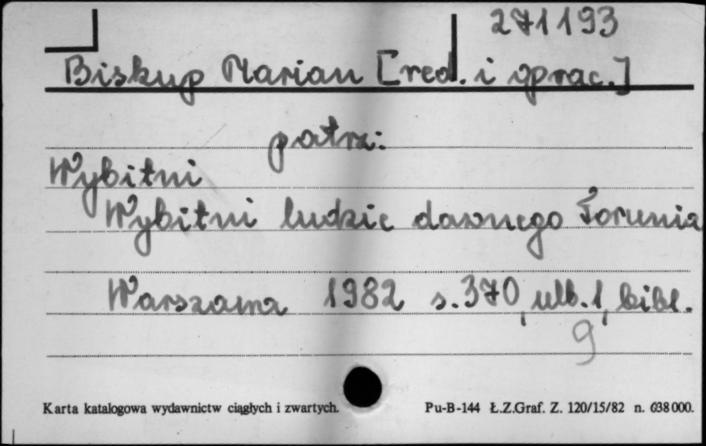 271193
Biskup Marian [red. i oprac.]
patrz:
Wybitni
Wybitni ludzie dawnego Torunia
Warszawa 1982 s. 370, nlb. 1, bibl.
9
Karta katalogowa wydawnictw ciągłych i zwartych. Pu-B-144 Ł.Z.Graf. Z. 120/15/82 n. 638000.